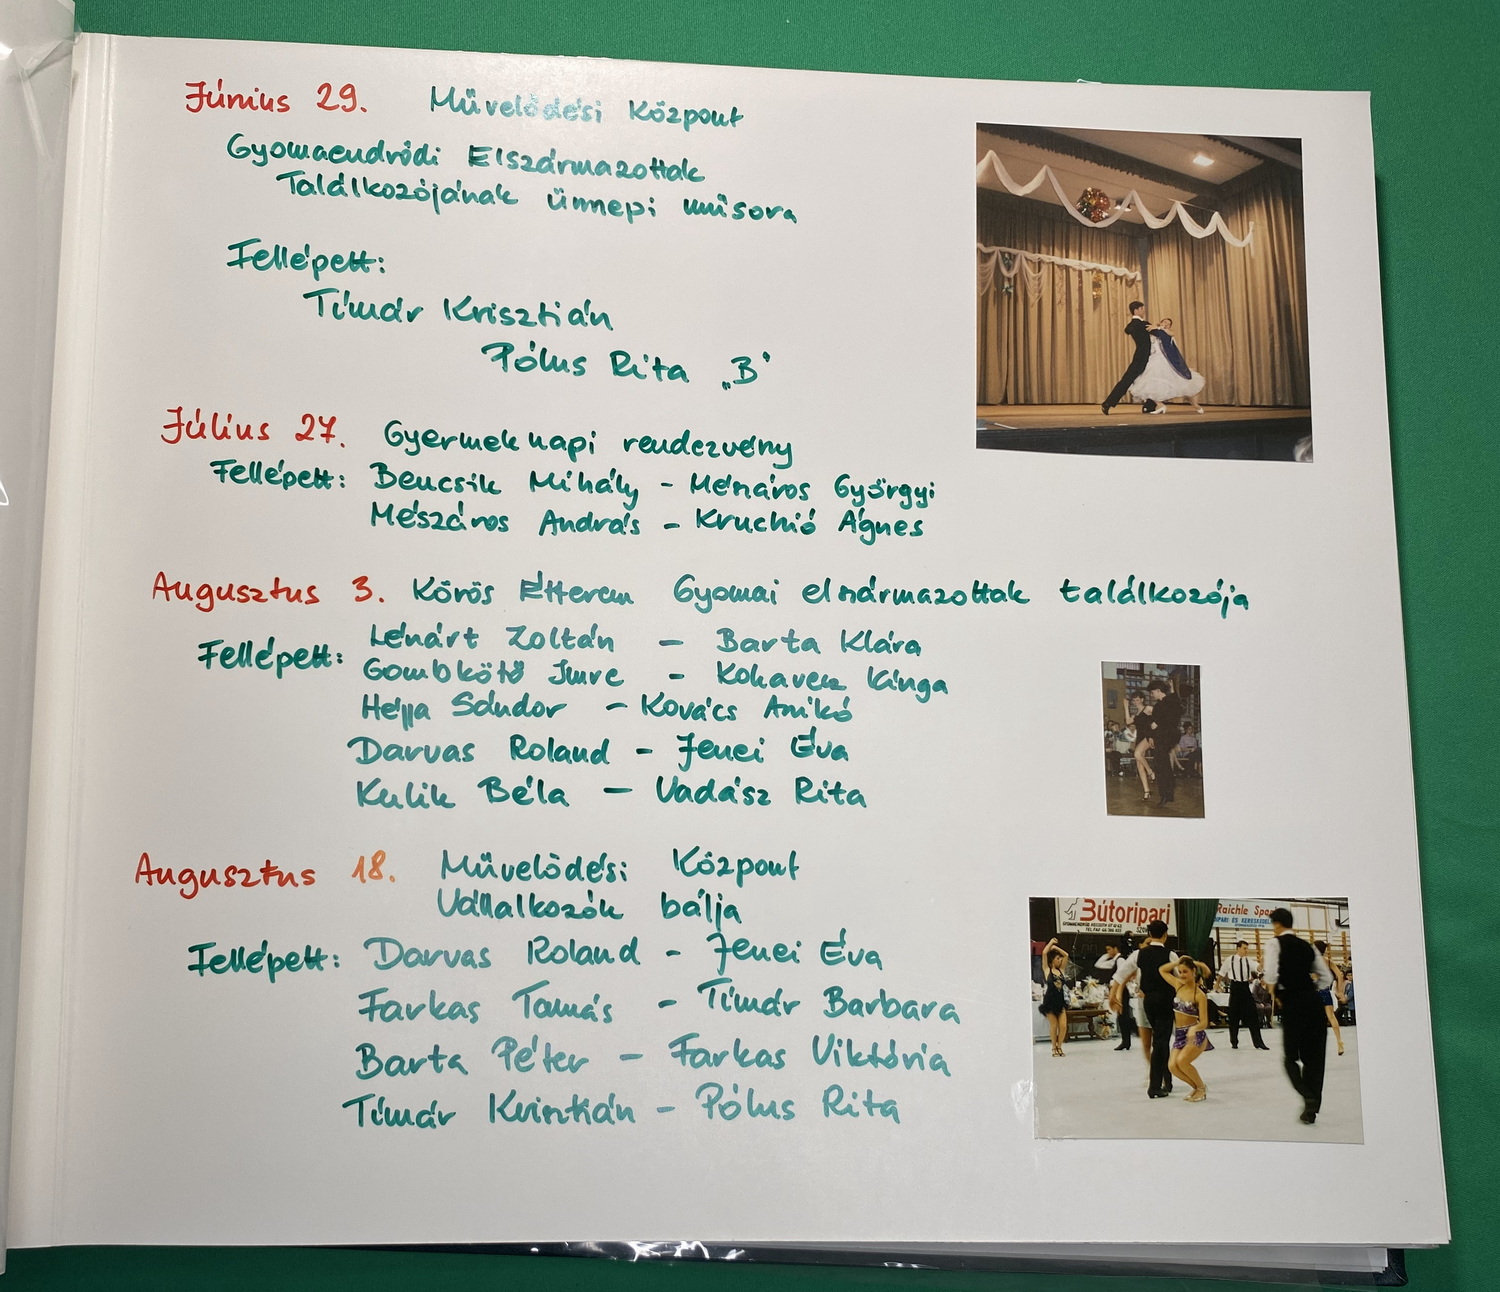 Június 29. Művelődési Központ
Gyomaendrődi Elszármazottak
Találkozójának ünnepi műsora
Fellépett:
Tímár Krisztián
Pólus Rita „B"
Július 27. Gyermeknapi rendezvény
Fellépett: Bencsik Mihály - Mészáros Györgyi
Mészáros András - Kruchió Ágnes
Augusztus 3. Körös Étterem Gyomai elszármazottak találkozója
Fellépett: Lénárt Zoltán - Barta Klára
Gombkötő Imre - Kohavecz Kinga
Héjja Sándor - Kovács Anikó
Darvas Roland - Jenei Éva
Kulik Béla - Vadász Rita
Augusztus 18. Művelődési Központ
Vállalkozók bálja
Fellépett: Darvas Roland - Jenei Éva
Farkas Tamás - Tímár Barbara
Barta Péter - Farkas Viktória
Tímár Krisztián - Pólus Rita
Bútoripari
Raichle